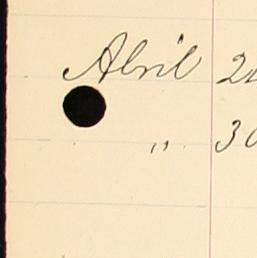 April 2
" 30